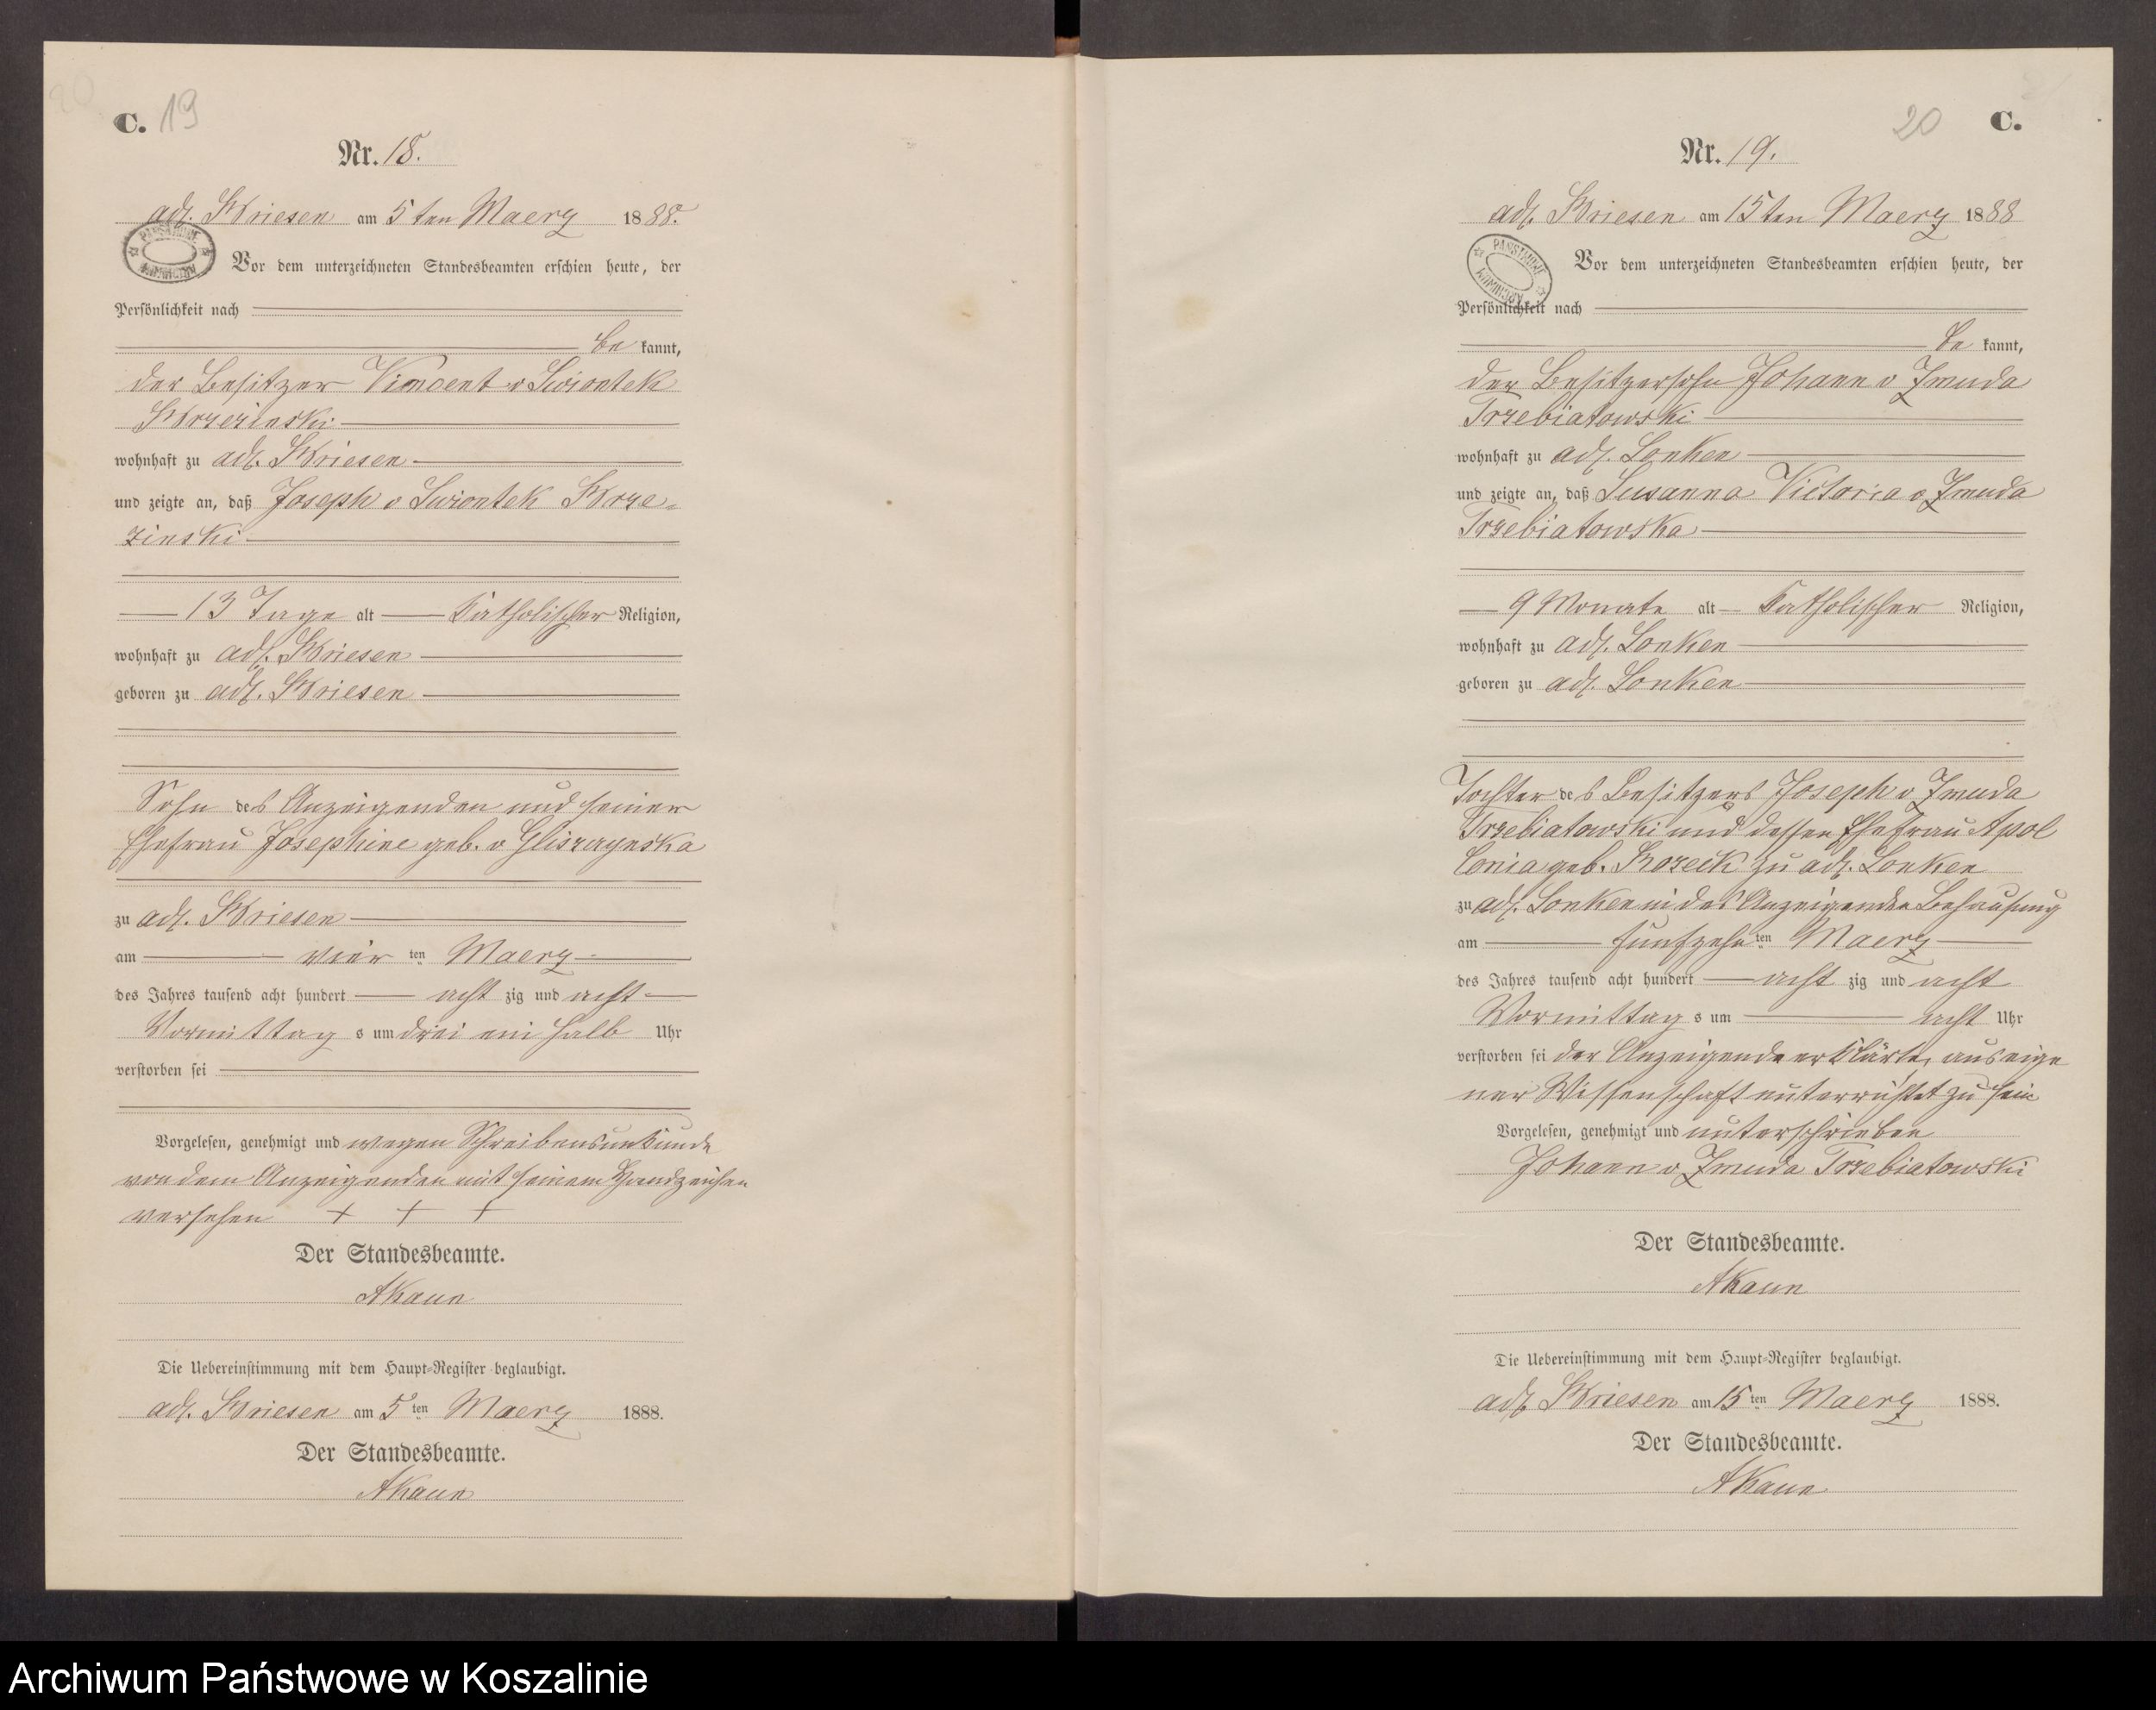 C. 19
Nr. 18.
adl. Briesen am 5ten Maerz 1888.
PAŃSTWOWE ARCHIWUM
Vor dem unterzeichneten Standesbeamten erschien heute, der
Persönlichkeit nach
be kannt,
der Besitzer Vincent v Swiontek
Brzezinski
wohnhaft zu adl. Briesen
und zeigte an, daß Joseph v Swiontek Brze-
zinski
13 Tage alt katholischer Religion,
wohnhaft zu adl. Briesen
geboren zu adl. Briesen
Sohn des Anzeigenden und seiner
Ehefrau Josephine geb. v Gliszczynska
zu adl. Briesen
am vier ten Maerz
des Jahres tausend acht hundert acht zig und acht
Vormittag s um drei ein halb Uhr
verstorben sei
Vorgelesen, genehmigt und wegen Schreibensunkunde
von dem Anzeigenden mit seinem Handzeichen
versehen + + +
Der Standesbeamte.
AKaun
Die Uebereinstimmung mit dem Haupt-Register beglaubigt.
adl. Briesen am 5 ten Maerz 1888.
Der Standesbeamte.
AKaun
20 C.
Nr. 19.
adl. Briesen am 15ten Maerz 1888
PAŃSTWOWE ARCHIWUM
Vor dem unterzeichneten Standesbeamten erschien heute, der
Persönlichkeit nach
be kannt,
der Besitzersohn Johann v Zmuda
Trzebiatowski
wohnhaft zu adl. Lonken
und zeigte an, daß Susanna Victoria v Zmuda
Trzebiatowska
9 Monate alt katholischer Religion,
wohnhaft zu adl. Lonken
geboren zu adl. Lonken
Tochter des Besitzers Joseph v Zmuda
Trzebiatowski und dessen Ehefrau Apol
lonia geb. zu adl. Lonken
zu adl. Lonken in des Anzeigenden Behausung
am fünfzehn ten Maerz
des Jahres tausend acht hundert acht zig und acht
Vormittag s um acht Uhr
verstorben sei der Anzeigende erklärte, aus eige
ner Wissenschaft unterrichtet zu sein
Vorgelesen, genehmigt und unterschrieben
Johann v Zmuda Trzebiatowski
Der Standesbeamte.
AKaun
Die Uebereinstimmung mit dem Haupt-Register beglaubigt.
adl. Briesen am 15 ten Maerz 1888.
Der Standesbeamte.
AKaun
Archiwum Państwowe w Koszalinie